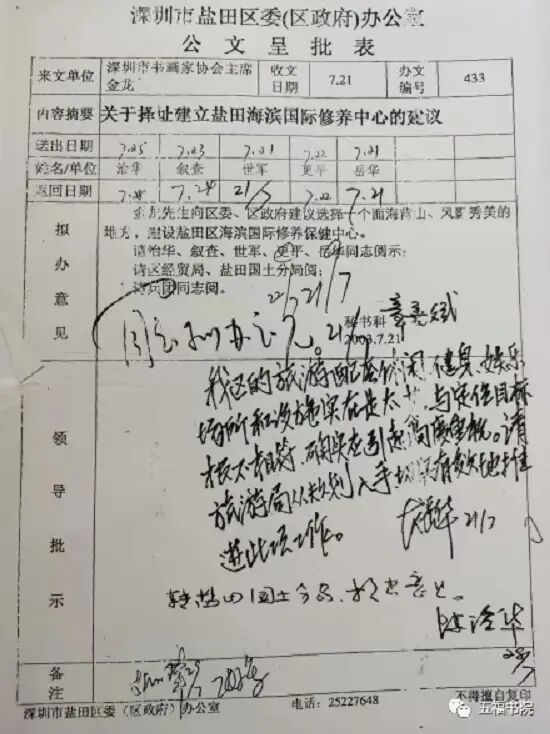 深圳市盐田区委(区政府)办公室
公文呈批表
来文单位 深圳市书画家协会主席金龙 收文日期 7.21 办文编号 433
内容摘要 关于择址建立盐田海滨国际修养中心的建议
送出日期 7.25 7.23 7.21 7.22 7.21
姓名/单位 治华 叙查 世军 更平 岳华
返回日期 7.24 21/7 7.22 7.21
拟办意见
金龙先生向区委、区政府建议选择一个面海背山、风影秀美的
地方,建设盐田区海滨国际修养保健中心。
请治华、叙查、世军、更平、岳华同志阅示;
请区经贸局、盐田国土分局阅;
请兵团同志阅。
22/7 21/7
同意拟办意见。21/7
秘书科
2003.7.21
领导批示
我区的旅游配套休闲、健身、娱乐
场所和设施实在是太少,与定位目标
极不相符,确实应引起高度重视。请
旅游局从规划入手,切实有效地推
进此项工作。
岳华 21/7
转盐田国土分局,
治华
28/7
备注
深圳市盐田区委(区政府)办公室 电话:25227648 不得擅自复印
五福书院